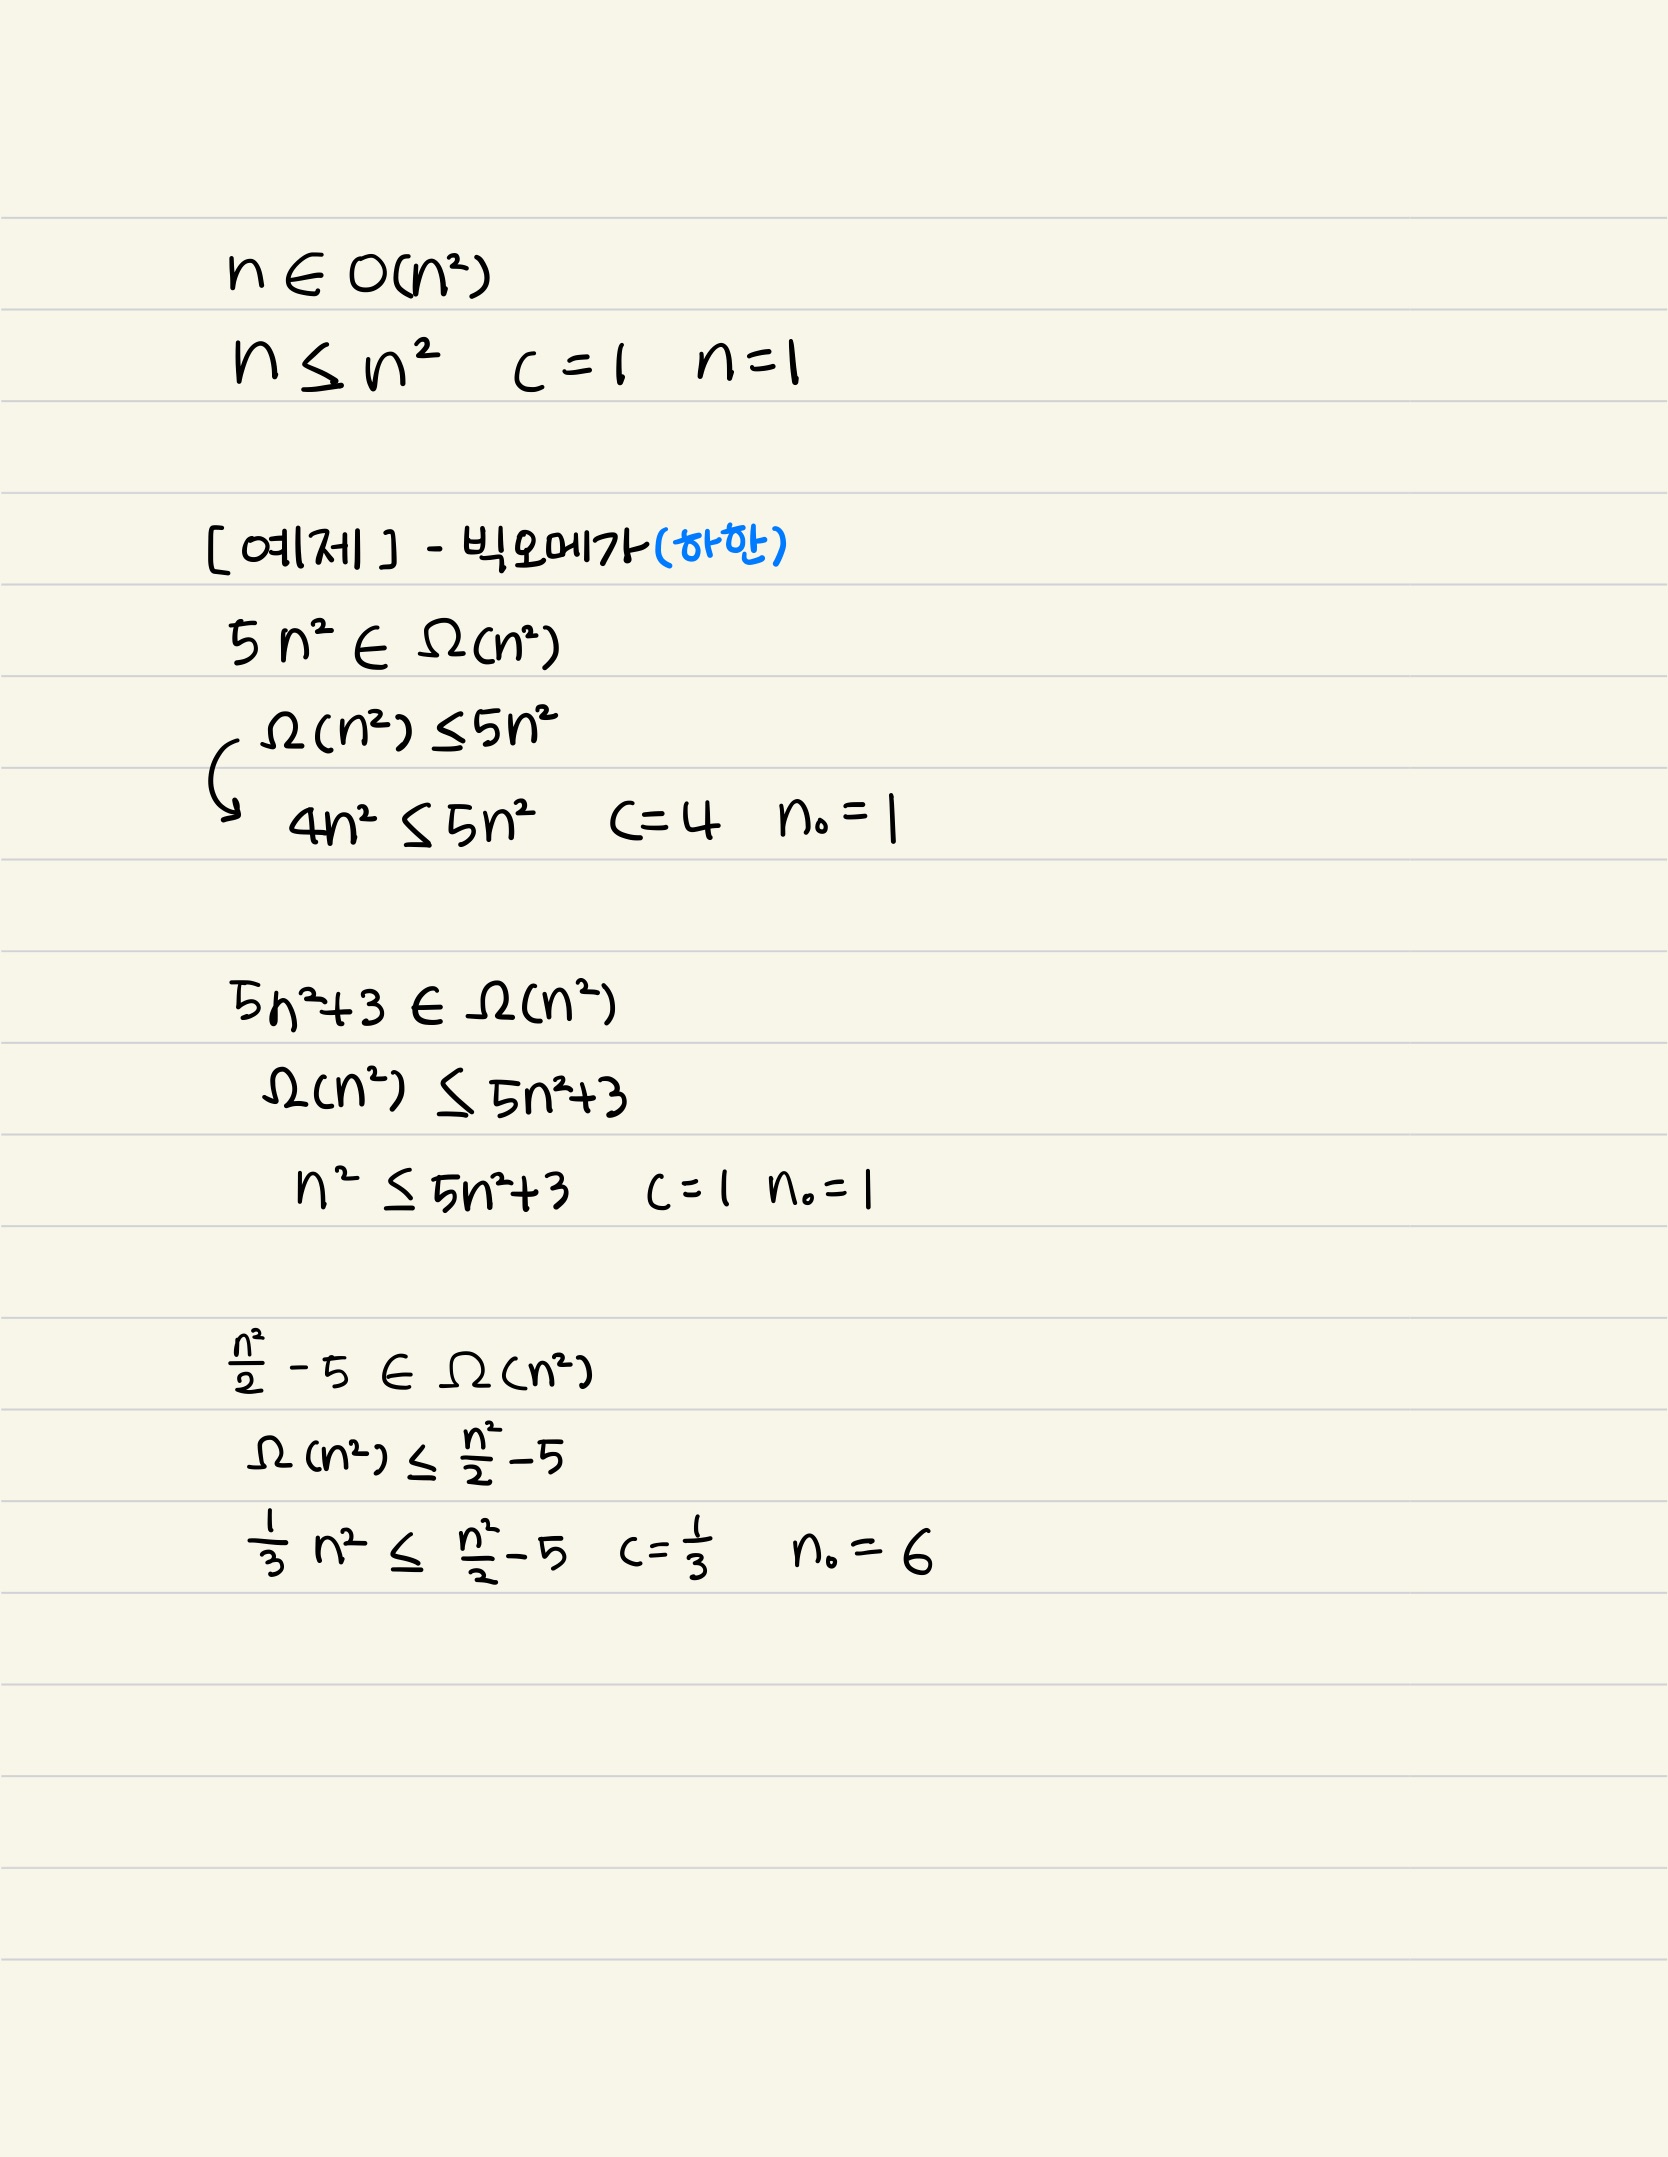 n ∈ O(n²)
n ≤ n² c = 1 n = 1
[예제] - 빅오메가(하한)
5n² ∈ Ω(n²)
Ω(n²) ≤ 5n²
4n² ≤ 5n² c = 4 n₀ = 1
5n²+3 ∈ Ω(n²)
Ω(n²) ≤ 5n²+3
n² ≤ 5n²+3 c = 1 n₀ = 1
n²/2 - 5 ∈ Ω(n²)
Ω(n²) ≤ n²/2 - 5
1/3 n² ≤ n²/2 - 5 c = 1/3 n₀ = 6